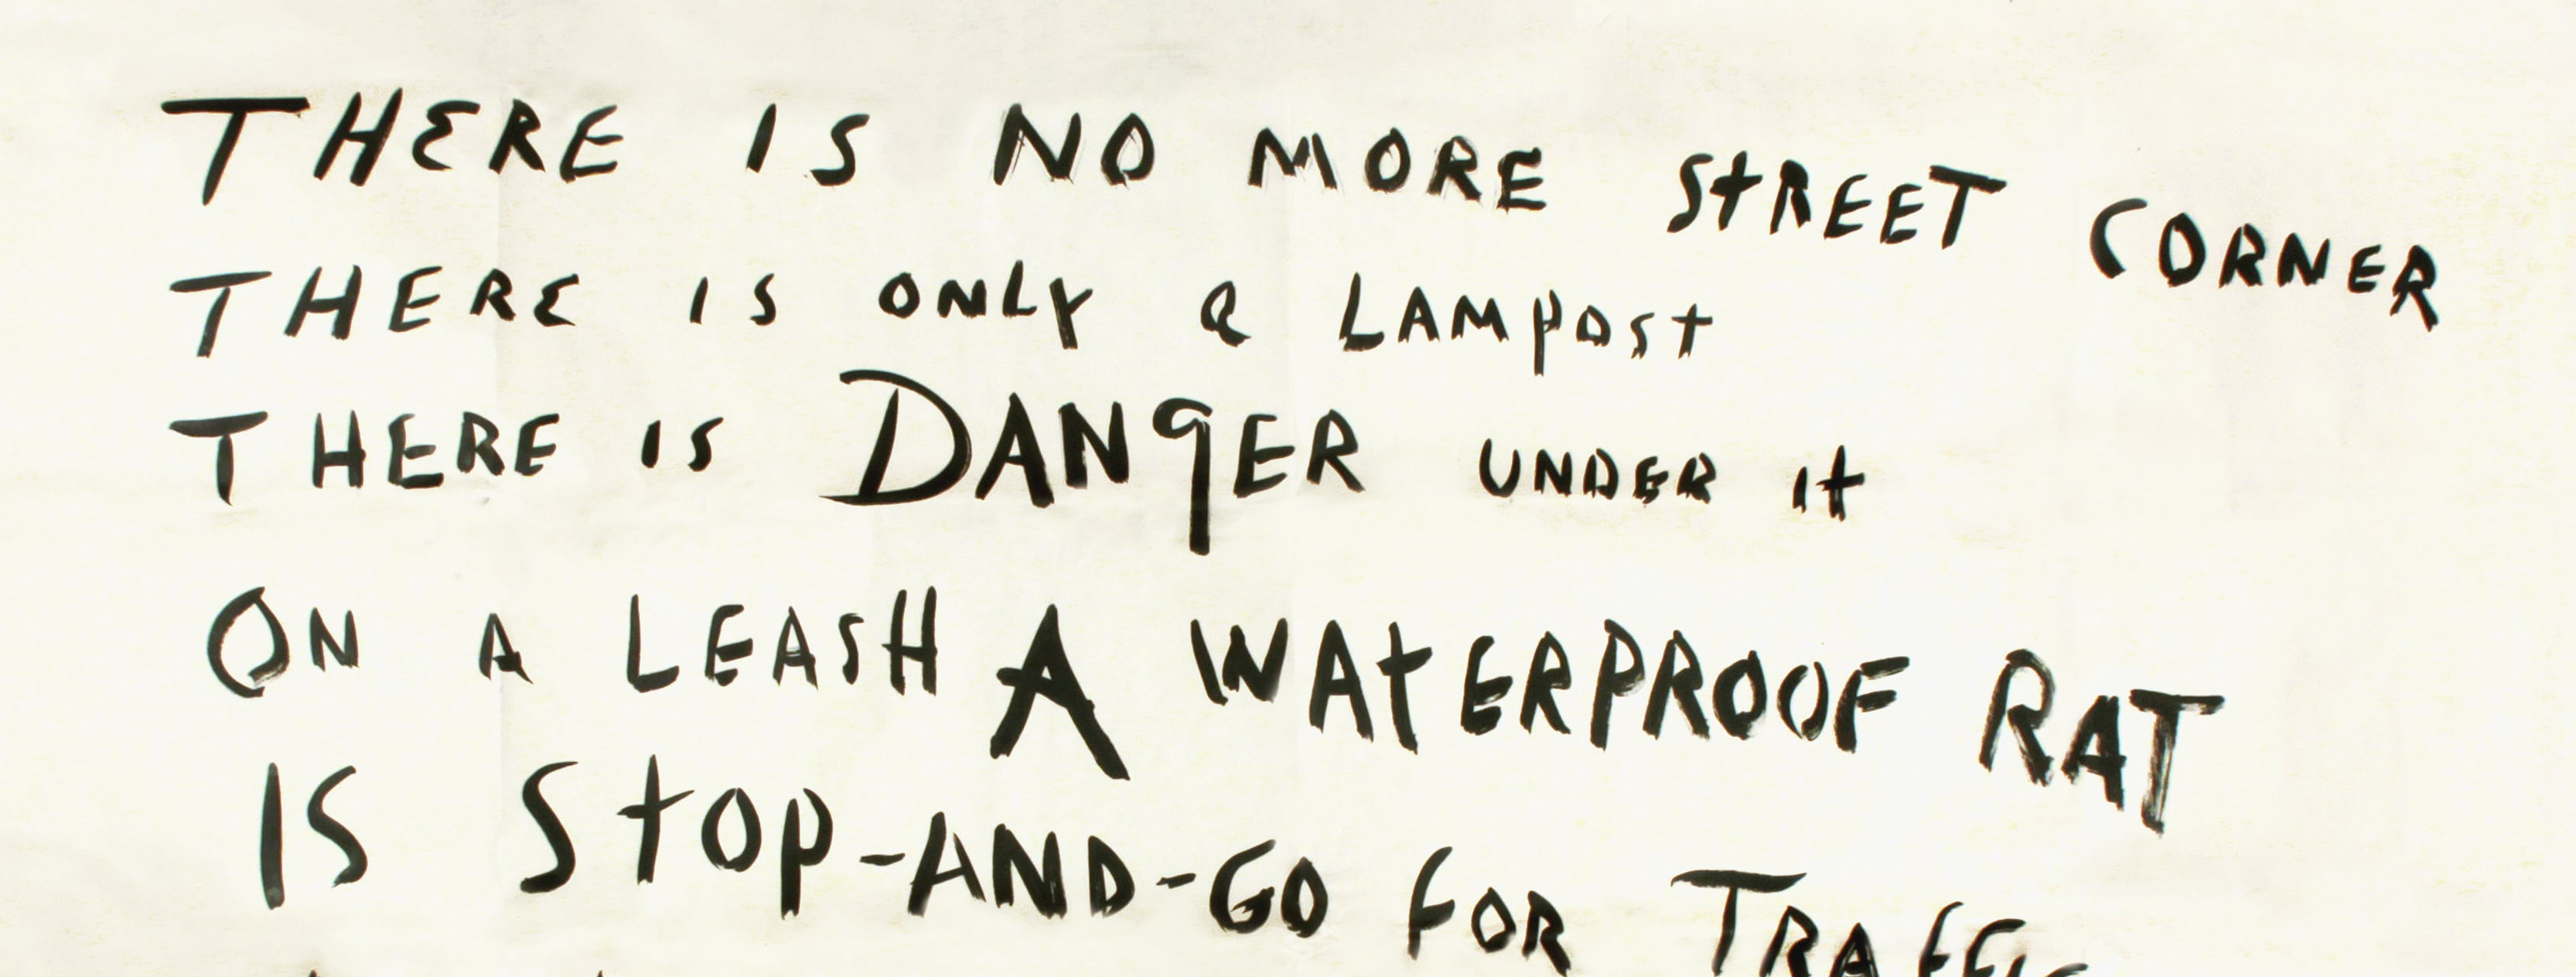 THERE IS NO MORE STREET CORNER
THERE IS ONLY a LAMpOSt
THERE IS DANgER UNDER It
ON A LEASH A WAtERPROOF RAT
IS StOp-AND-GO FOR TRAFFIC